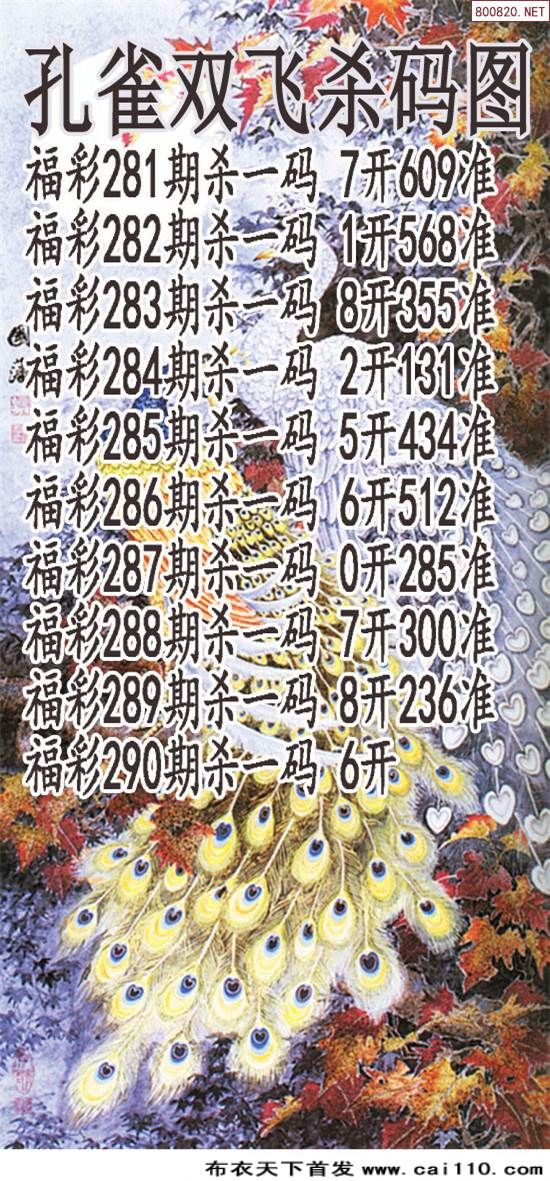 800820.NET
孔雀双飞杀码图
福彩281期杀一码 7开609准
福彩282期杀一码 1开568准
福彩283期杀一码 8开355准
福彩284期杀一码 2开131准
福彩285期杀一码 5开434准
福彩286期杀一码 6开512准
福彩287期杀一码 0开285准
福彩288期杀一码 7开300准
福彩289期杀一码 8开236准
福彩290期杀一码 6开
布衣天下首发 www.cai110.com